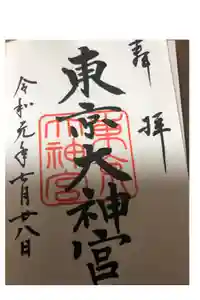 奉拝
東京大神宮
東京
大神宮
令和元年七月廿八日